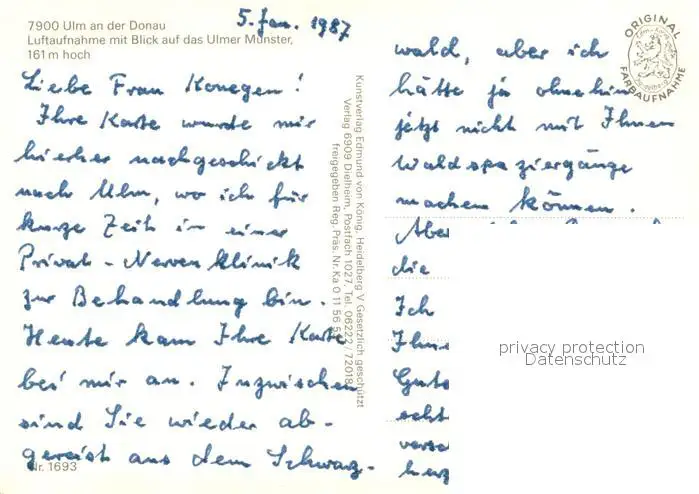 7900 Ulm an der Donau
Luftaufnahme mit Blick auf das Ulmer Münster,
161 m hoch
5. Jan. 1987
Liebe Frau Konegen!
Ihre Karte wurde mir
hierher nachgeschickt
nach Ulm, wo ich für
kurze Zeit in einer
Privat-Nervenklinik
zur Behandlung bin.
Heute kam Ihre Karte
bei mir an. Inzwischen
sind Sie wieder ab-
gereist aus dem Schwarz-
Nr. 1693
Kunstverlag Edmund von König, Heidelberg V Gesetzlich geschützt
Verlag 6909 Dielheim, Postfach 1027, Tel. 06222 / 72018
freigegeben Reg. Präs. Nr. Ka 0 11 56 5
ORIGINAL
FARBAUFNAHME
wald, aber ich
hätte ja ohnehin
jetzt nicht mit Ihnen
Waldspaziergänge
machen können.
Aber
die
Ich
Ihne
Gute
scht
versc
herz
privacy protection
Datenschutz